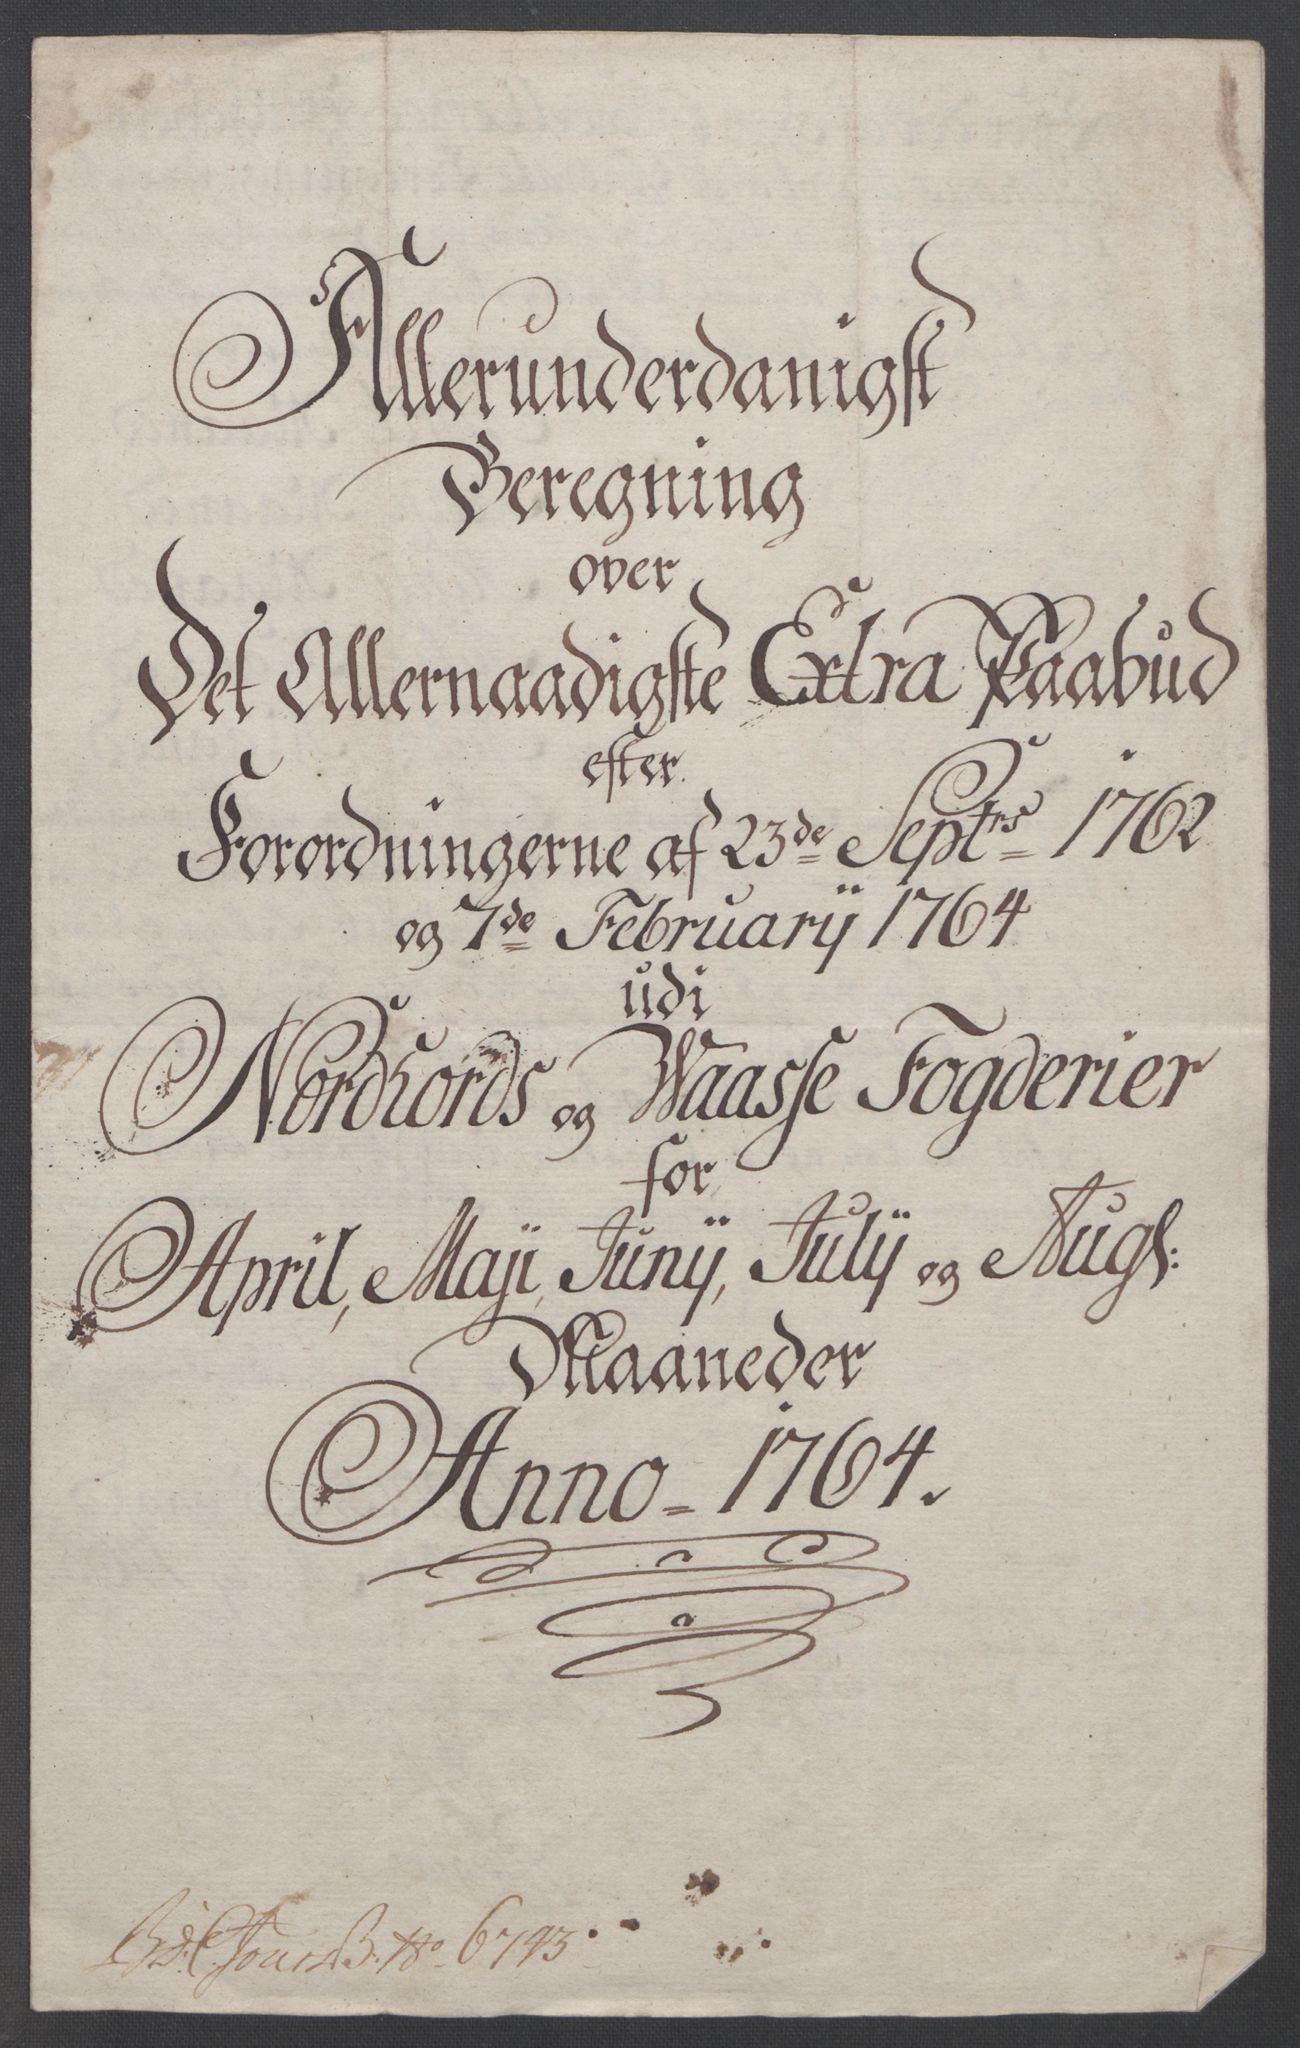 Allerunderdanigst
Beregning
over
Det Allernaadigste Extra Paabud
efter
Forordningerne af 23de Septrs 1762
og 7de Februarÿ 1764
udi
Nordhords og Waasse Fogderier
for
April, Maji, Junÿ, Julÿ og Augs:
Maaneder
Anno 1764.
No 6743.